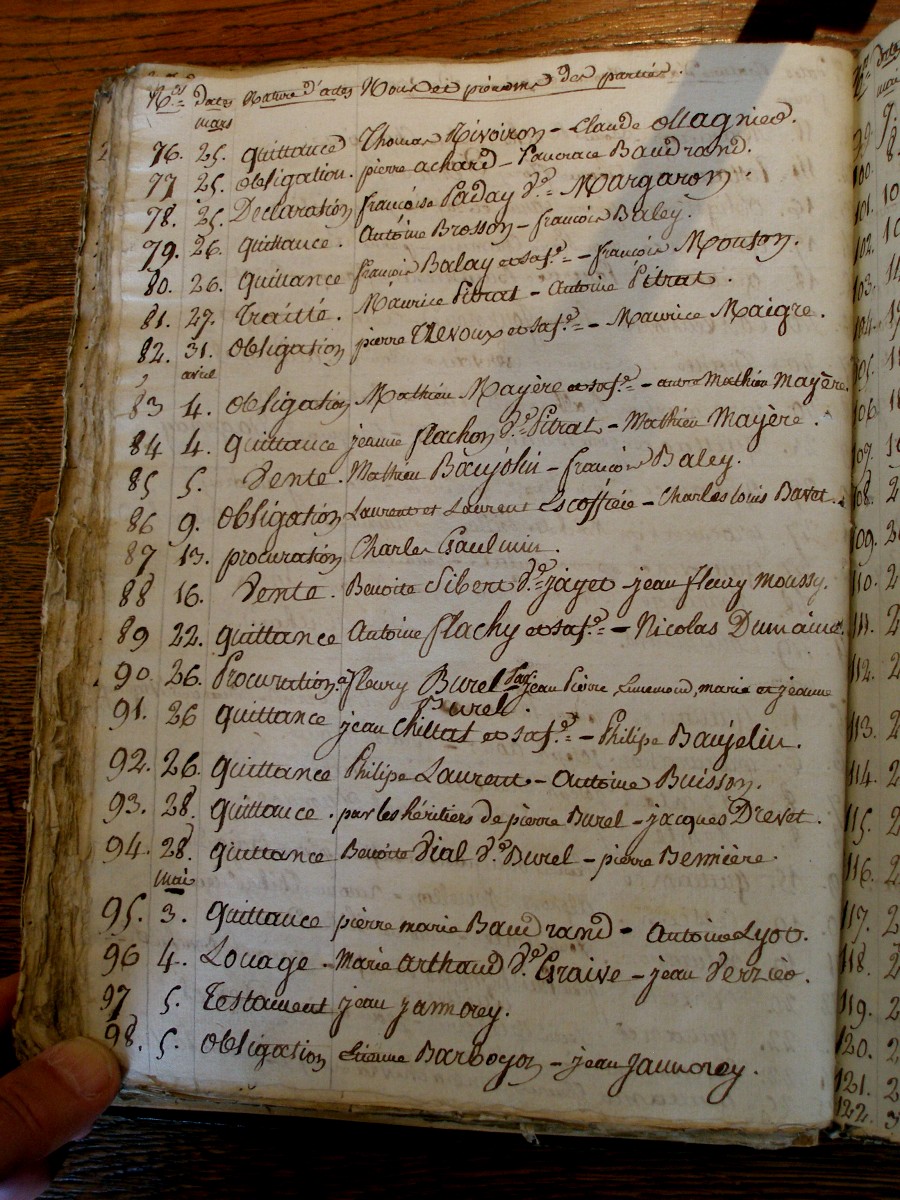 Nos. dates Nature d'actes Noms et prénoms des parties.
mars
76. 25. quittance Thomas Rivoiron - Claude Ollagnier.
77 25. obligation. pierre achard - Pancrace Baudrand.
78. 25. Declaration françoise Paday Ve. Margaron.
79. 26. quittance. Antoine Brosson - françois Baley.
80. 26. quittance françois Balay et sa fe. - françois Mouton.
81. 27. Traitté. Maurice Pitrat - Antoine Pitrat.
82. 31. obligation pierre Thevoux et sa fe. - Maurice Maigre.
avril
83 4. obligation Mathieu Mayère et sa fe. - autre Mathieu Mayère.
84 4. quittance jeanne flachon Ve. Pitrat - Mathieu Mayère.
85 5. Vente. Mathieu Baujolin - françois Baley.
86 9. obligation Laurent et Laurent Escoffieé - Charles louis Bavet.
87 13. procuration Charles Gaulmin.
88 16. Vente. Benoite Sibert Ve. jayet - jean fleury moussy.
89 22. quittance Antoine flachy et sa fe. - Nicolas Dumaine.
90 26. Procuration. a fleury Burel Par jean Pierre, marie et jeanne
Burel.
91. 26 quittance jean Chillat et sa fe. - Philipe Baujelin.
92. 26. quittance Philipe Laurent - Antoine Buisson.
93. 28. quittance. par les héritiers de pierre Burel - jacques Drevet.
94. 28. quittance Benoite Vial Ve. Burel - pierre Bemière.
mai
95. 3. quittance pierre marie Baudrand - Antoine Lyot.
96 4. Louage. Marie arthaud Ve. Graive - jean Verzieo.
97 5. Testament jean jamorey.
98. 5. obligation Etienne Barboyon - jean jaumorey.